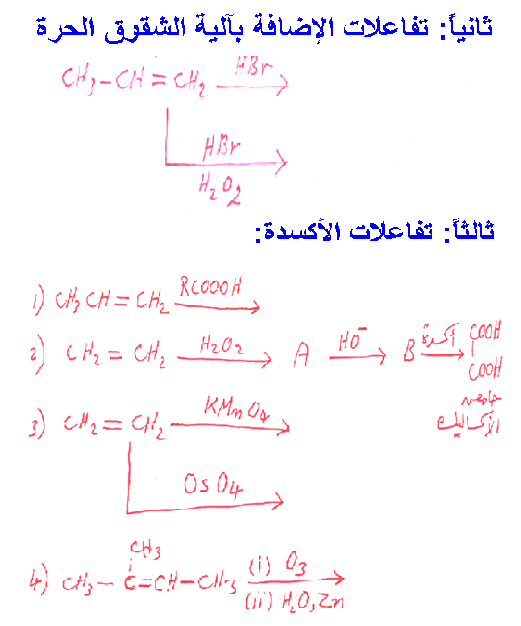 ثانياً: تفاعلات الإضافة بآلية الشقوق الحرة
CH3-CH=CH2 HBr
HBr
H2O2
ثالثاً: تفاعلات الأكسدة:
1) CH3CH=CH2 RCOOOH
2) CH2=CH2 H2O2 A HO- B أكسدة COOH
COOH
حامض
الأكساليك
3) CH2=CH2 KMnO4
OsO4
CH3
4) CH3-C=CH-CH3 (i) O3
(ii) H2O,Zn